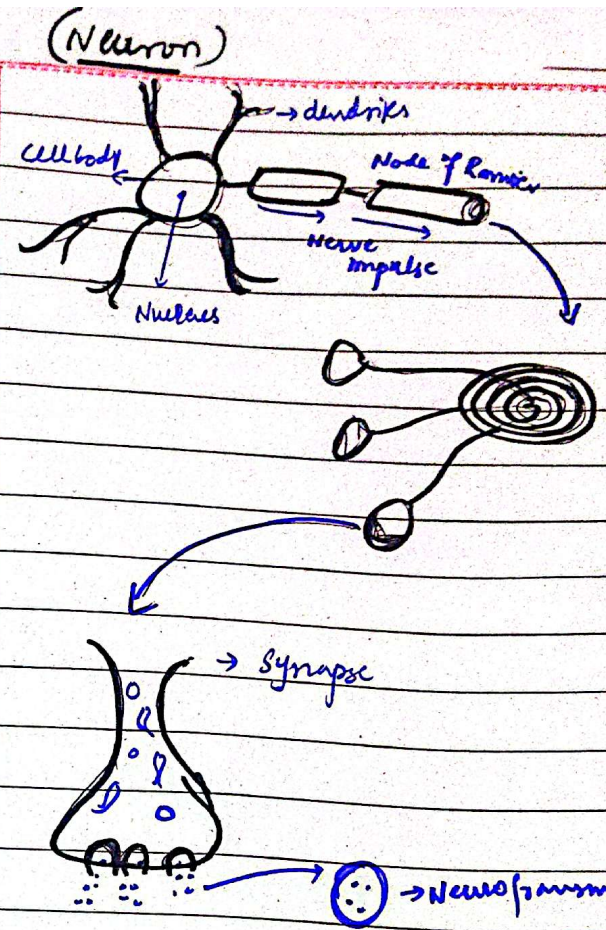 (Neuron)
→ dendrites
Cell body
Node of Ranvier
Nerve
impulse
Nucleus
→ Synapse
→ Neurotransm